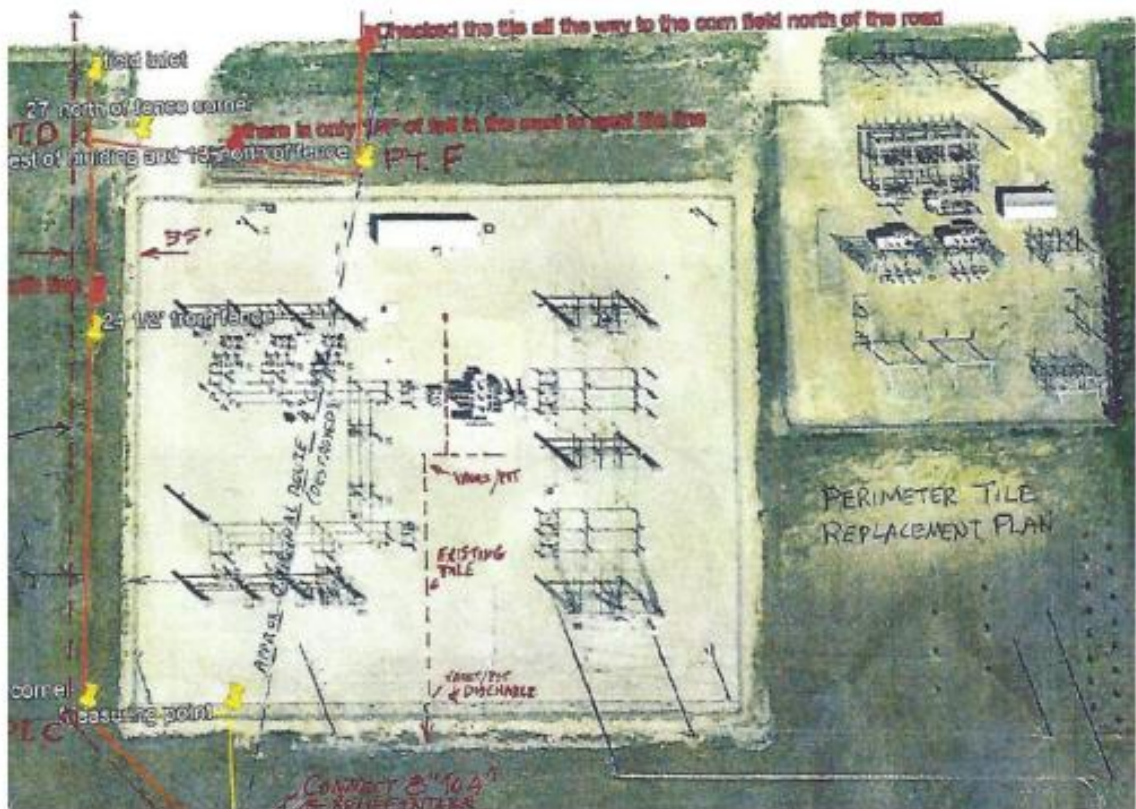 Checked the tile all the way to the corn field north of the road
field inlet
27' north of fence corner
PT. D
there is only of fall in the west to east tile line
of building and north of fence
PT. F
35'
24 1/2' from fence
APPROX ORIGINAL ROUTE
(DESTROYED)
EXISTING
TILE
PERIMETER TILE
REPLACEMENT PLAN
corner
measuring point
PT. C
DISCHARGE
CONNECT 8" TO 4"